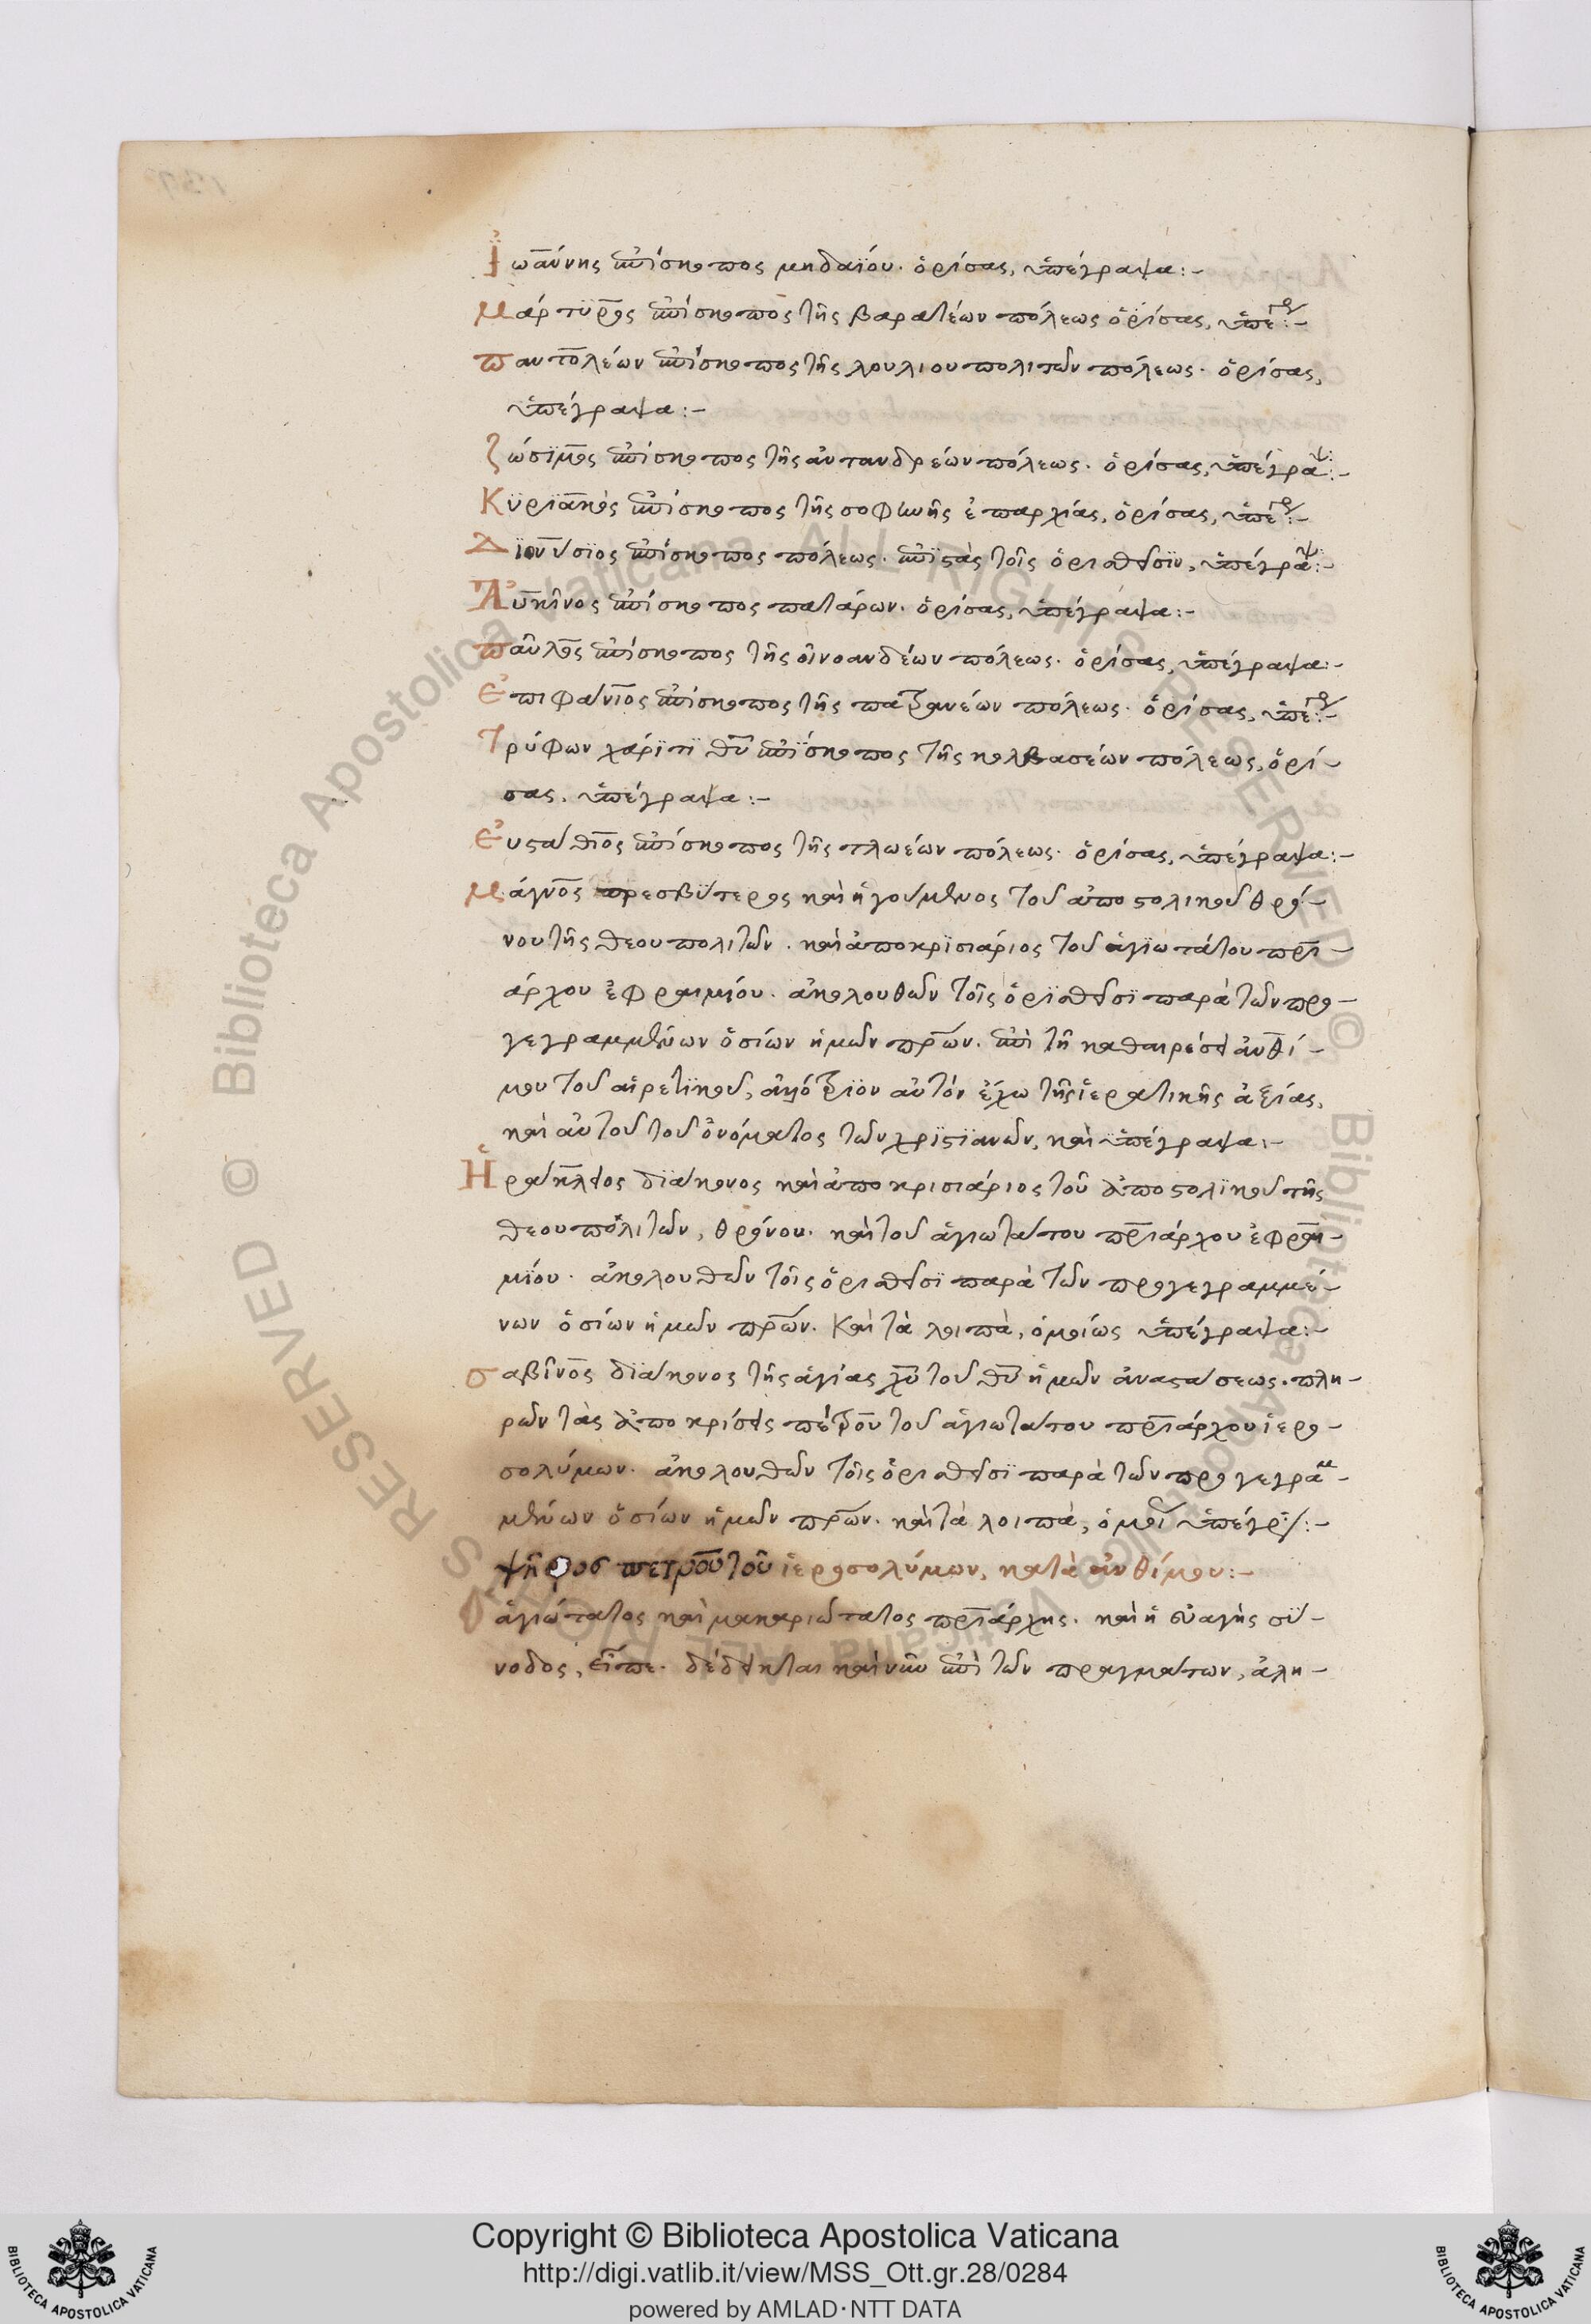 Ἰωάννης ἐπίσκοπος μηδαΐου. ὁρίσας, ὑπέγραψα:-
Μαρτύρϊος ἐπίσκοπος τῆς βαρατέων πόλεως ὁρίσας, ὑπέγρ:-
Παντολέων ἐπίσκοπος τῆς λουλιουπολιτῶν πόλεως. ὁρίσας,
ὑπέγραψα:-
Ζώσϊμος ἐπίσκοπος τῆς ἀντανδρέων πόλεως. ὁρίσας, ὑπέγραψ:-
Κϋριακὸς ἐπίσκοπος τῆς σοφηνῆς ἐπαρχίας, ὁρίσας, ὑπέγρ:-
Διονύσϊος ἐπίσκοπος πόλεως. ἐπϊστὰς τοῖς ὁρισθεῖσϊν, ὑπέγραψ:-
ἐπίσκοπος πατάρων. ὁρίσας, ὑπέγραψα:-
Παῦλος ἐπίσκοπος τῆς οἰνοανδέων πόλεως. ὁρίσας, ὑπέγραψα:-
Ἐπιφάνιος ἐπίσκοπος τῆς πόλεως. ὁρίσας, ὑπέγρ:-
Τρύφων χάρϊτϊ θῦ ἐπΐσκοπος τῆς κολβασέων πόλεως, ὁρί-
σας, ὑπέγραψα:-
Εὐστάθιος ἐπίσκοπος τῆς τλωέων πόλεως. ὁρίσας, ὑπέγραψα:-
Μάγνος πρεσβύτερος καὶ ἡγούμενος τοῦ ἀποστολικοῦ θρό-
νου τῆς θεουπολιτῶν. καὶ ἀποκρϊσιάριος τοῦ ἁγϊωτάτου πρι-
άρχου ἐφραιμίου. ἀκολουθῶν τοῖς ὁρϊσθεῖσϊ παρὰ τῶν προ-
γεγραμμένων ὁσίων ἡμῶν πρῶν. ἐπὶ τῇ καθαιρέσει ἀνθί-
μου τοῦ αἱρετϊκοῦ, ἀλλότρϊον αὐτόν ἔχω τῆς ἱερατικῆς ἀξίας,
καὶ αὐτοῦ τοῦ ὀνόματος τῶν χρϊστϊανῶν, καὶ ὑπέγραψα:-
Ἡράκλειος δϊάκονος καὶ ἀποκρισιάριος τοῦ ἀποστολϊκοῦ τῆς
θεουπόλιτῶν, θρόνου. καὶ τοῦ ἁγιωτάτου πριάρχου ἐφραι-
μϊου. ἀκολουθῶν τοῖς ὁρισθεῖσϊ παρὰ τῶν προγεγραμμέ-
νων ὁσίων ἡμῶν πρῶν. Καὶ τὰ λοιπὰ, ὁμοίως ὑπέγραψα:-
Σαβῖνος δϊάκονος τῆς ἁγίας χῦ τοῦ θῦ ἡμῶν ἀναστάσεως. πλη-
ρῶν τὰς ἀποκρίσεις πέτρου τοῦ ἁγιωτάτου πριάρχου ἱερο-
σολύμων. ἀκολουθῶν τοῖς ὁρισθεῖσϊ παρὰ τῶν προγεγραμ-
μένων ὁσίων ἡμῶν πρῶν. καὶ τὰ λοιπὰ, ὁμοί ὑπέγρ:-
ψῆφος πέτρου τοῦ ἱεροσολύμων, κατὰ ἀνθίμου:-
Ὁ ἁγιώτατος καὶ μακαριώτατος πριάρχης. καὶ ἡ εὐαγὴς σϋ-
νοδος, εἶπε. δέδεικται καὶ νῦν ἐπὶ τῶν πραγμάτων, ἀλη-
Copyright © Biblioteca Apostolica Vaticana
http://digi.vatlib.it/view/MSS_Ott.gr.28/0284
powered by AMLAD·NTT DATA
BIBLIOTECA APOSTOLICA VATICANA
BIBLIOTECA APOSTOLICA VATICANA
© Biblioteca Apostolica Vaticana ALL RIGHTS RESERVED
© Biblioteca Apostolica Vaticana ALL RIGHTS RESERVED